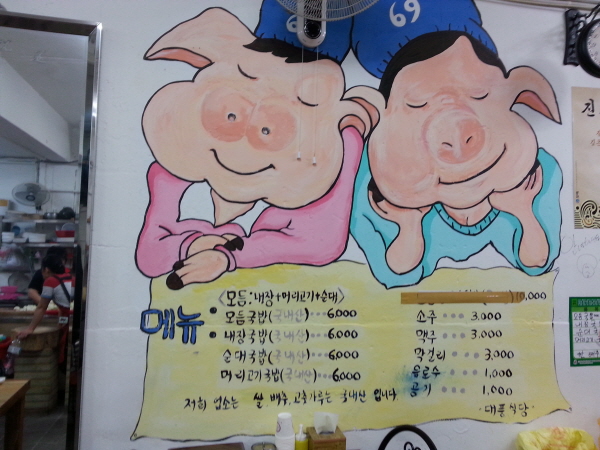 69
69
진
〈모듬:내장+머리고기+순대〉
메뉴
모듬국밥(국내산)···6,000
내장국밥(국내산)···6,000
순대국밥(국내산)···6,000
머리고기국밥(국내산)···6,000
10,000
소주 ··· 3,000
맥주 ··· 3,000
막걸리 ··· 3,000
음료수 ··· 1,000
공기 ··· 1,000
저희 업소는 쌀, 배추, 고춧가루는 국내산 입니다
-대풍식당-